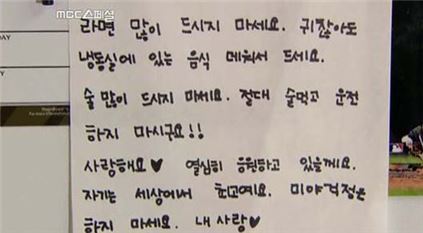 MBC스페셜
라면 많이 드시지 마세요. 귀찮아도
냉동실에 있는 음식 데워서 드세요.
술 많이 드시지 마세요. 절대 술먹고 운전
하지 마시구요!!
사랑해요♥ 열심히 응원하고 있을께요.
자기는 세상에서 최고예요. 미야걱정은
하지 마세요. 내사랑♥